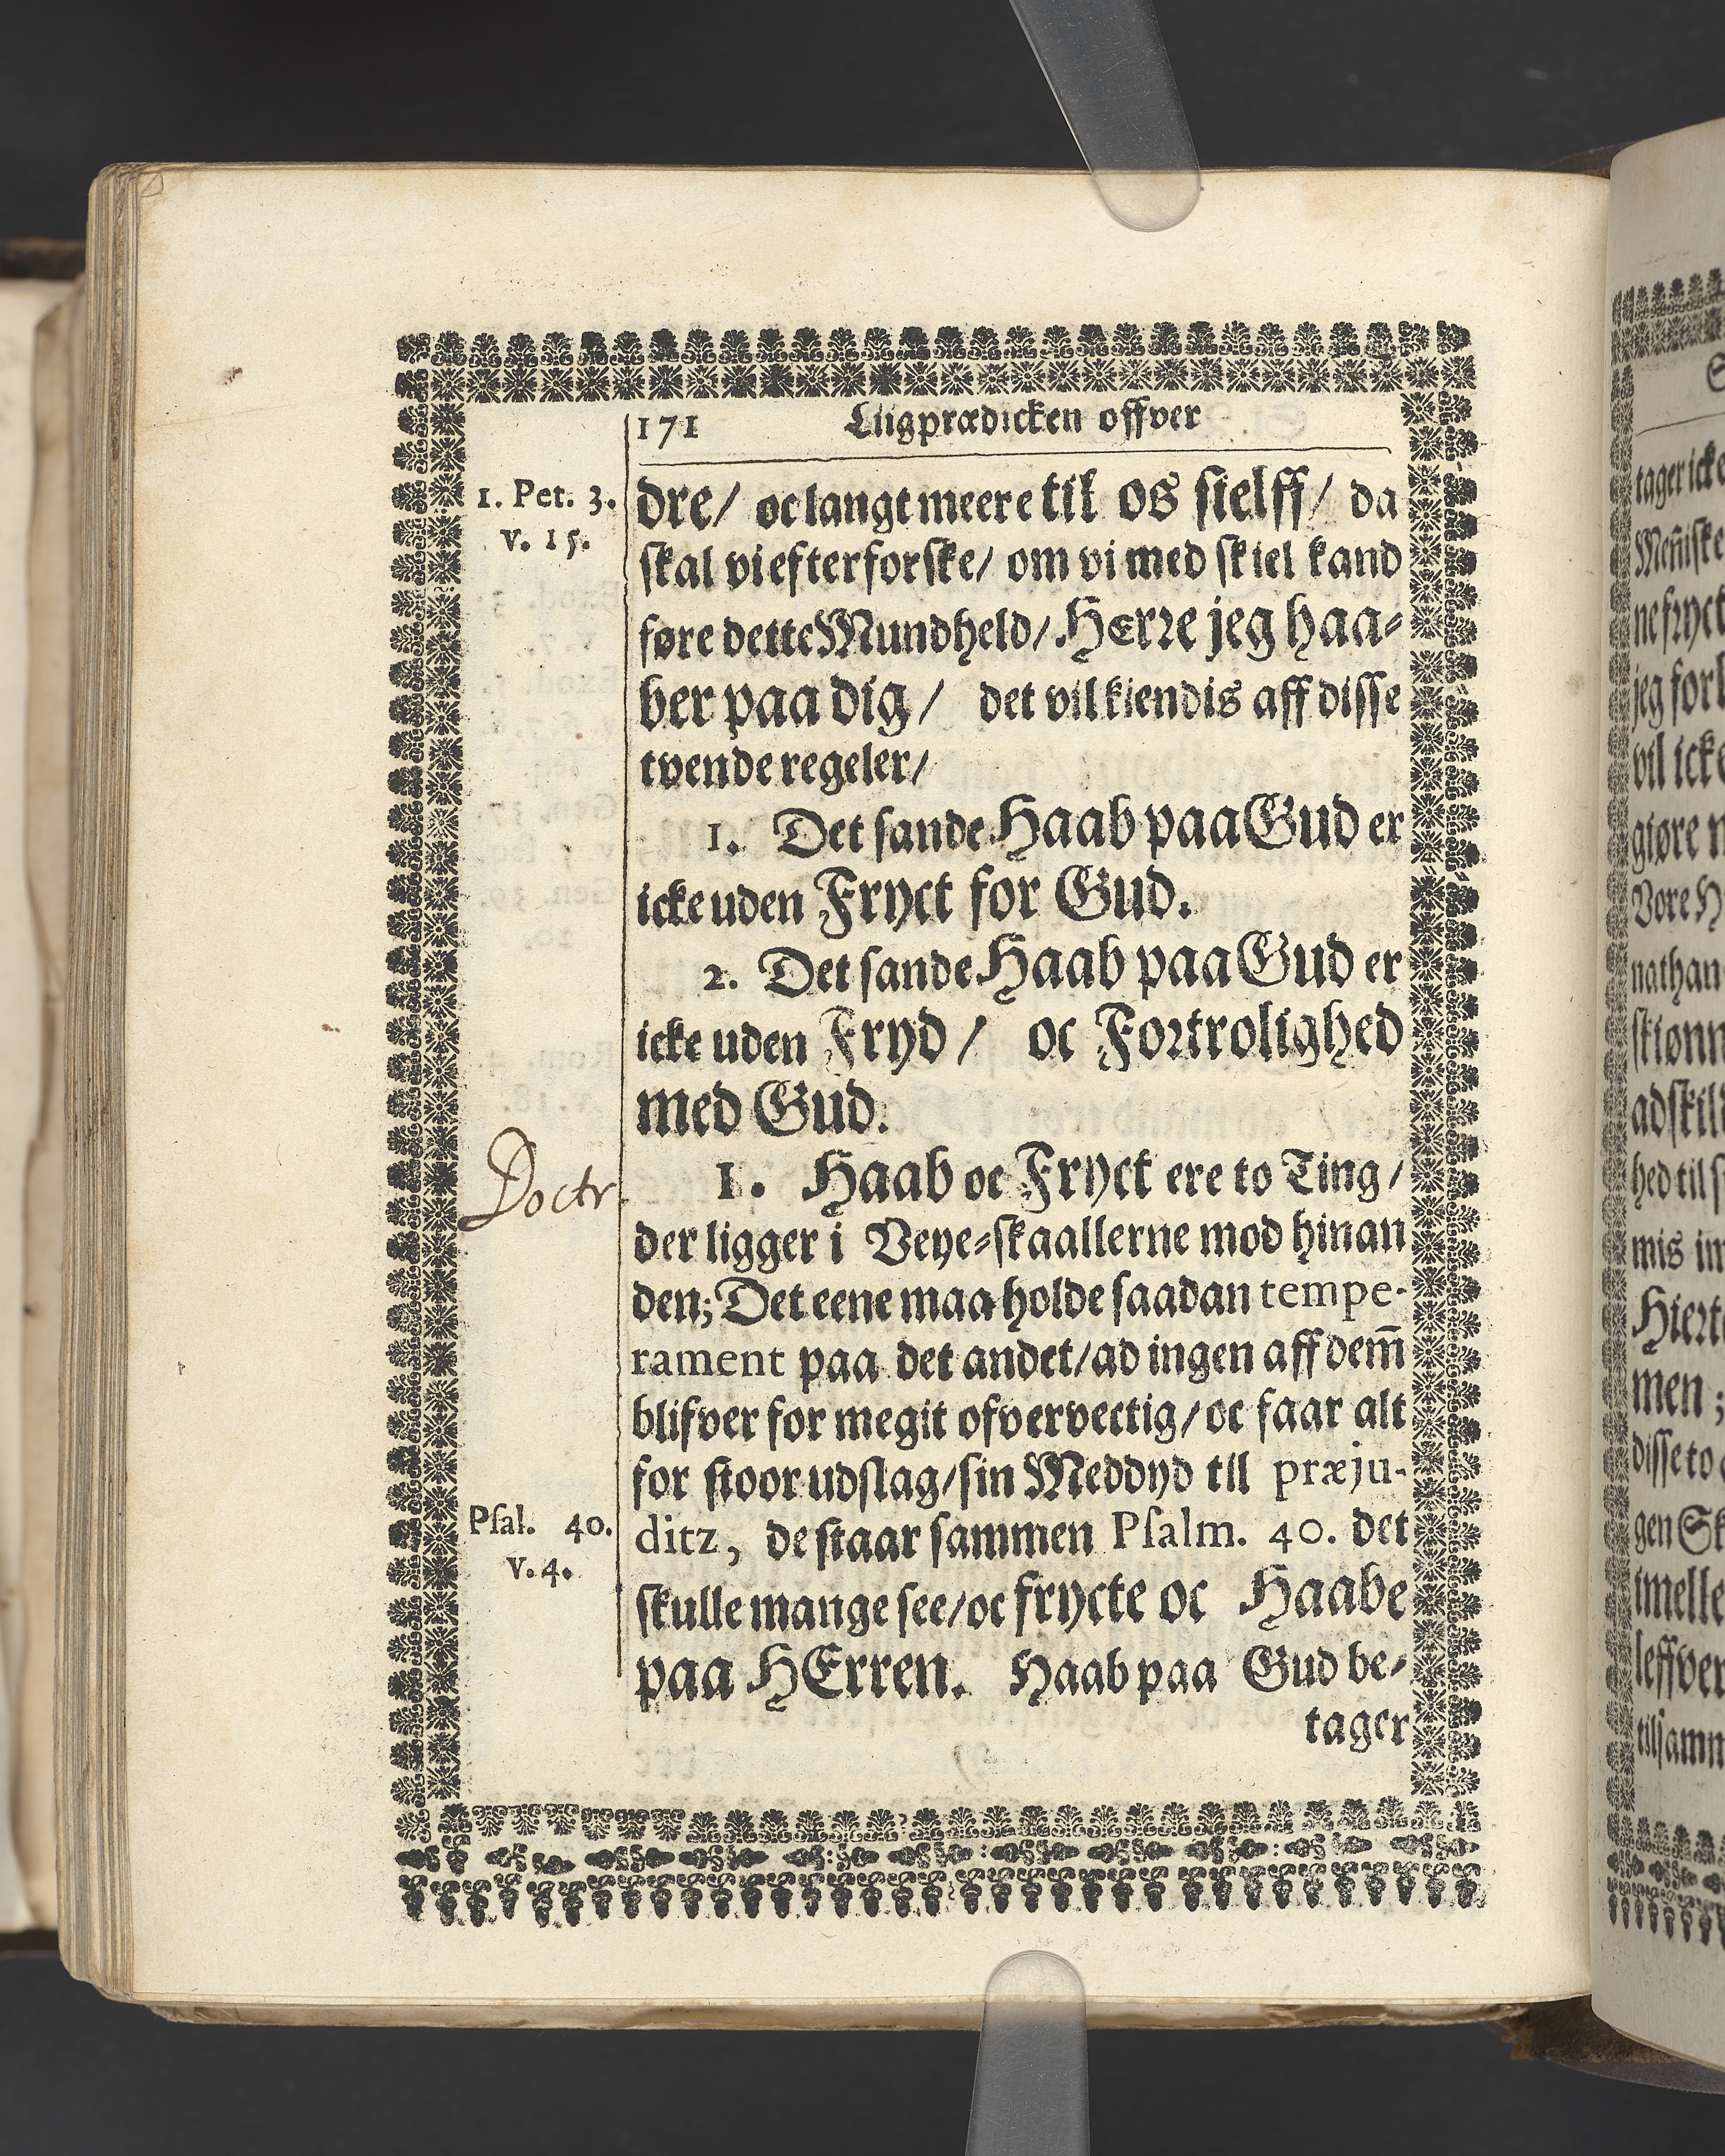 171 Liigprædicken offver
1. Pet. 3.
v. 15.
dre/ oc langt meere til os sielff/ da
skal vi efterforske/ om vi med skiel kand
føre dette Mundheld/ HErre jeg haa-
ber paa dig/ det vil kiendis aff disse
tvende regeler/
1. Det sande Haab paa Gud er
icke uden Fryct for Gud.
2. Det sande Haab paa Gud er
icke uden Fryd/ oc Fortrolighed
med Gud.
Doctr.
1. Haab oc Fryct ere to Ting/
der ligger i Veye-skaallerne mod hinan
den; Det eene maa holde saadan tempe-
rament paa det andet/ ad ingen aff dem̃
blifver for megit ofvervectig/ oc faar alt
for stoor udslag/ sin Meddyd tll præju-
Psal. 40.
v. 4.
ditz, de staar sammen Psalm. 40. det
skulle mange see/ oc frycte oc Haabe
paa HErren. Haab paa Gud be-
tager
tager icke
Men̄iske
ne fryct
jeg forl
vil icke
giøre
Vore H
nathan
skiønn
adskil
hed til s
mis im
Hiert
men ;
disse to
gen Sk
imelle
leffver
tilsamm